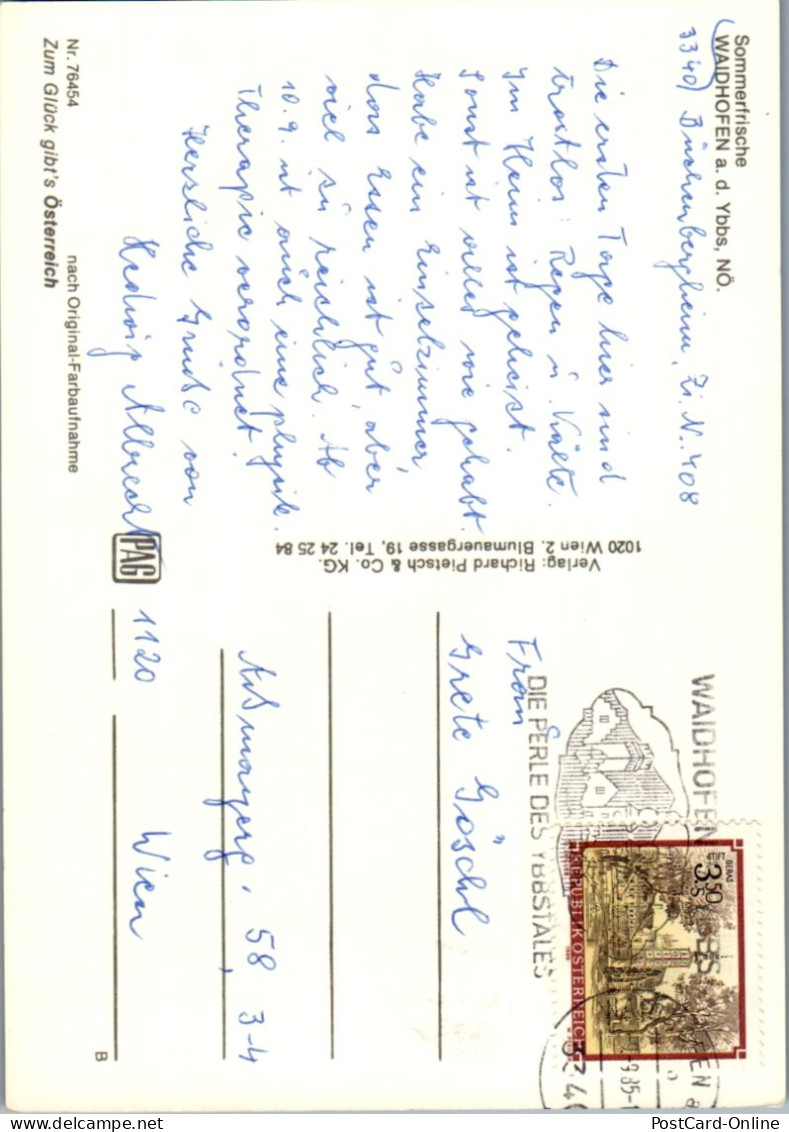 Sommerfrische
WAIDHOFEN a. d. Ybbs, NÖ.
3340) Buchenbergheim, Zi. N. 408
Die ersten Tage hier sind
trostlos: Regen u. Kälte.
Im Heim ist geheizt.
Sonst ist alles wie gehabt.
Habe ein Einzelzimmer,
das Essen ist gut, aber
viel zu reichlich. Ab
10. 9. ist auch eine physik.
Therapie verordnet.
Herzliche Grüße von
Hedwig Albrecht
Nr. 76454
nach Original-Farbaufnahme
Zum Glück gibt's Österreich
Verlag: Richard Pietsch & Co. KG.
1020 Wien 2. Blumauergasse 19, Tel. 24 25 84
PAG
WAIDHOFEN
YBBS
DIE PERLE DES YBBSTALES
STIFT
GERAS
3.50
S
REPUBLIK ÖSTERREICH
334
9.85-1
Frau
Grete Göschl
Aßmayerg. 58, 3-4
1120 Wien
B
PostCard-Online
PostCard-Online